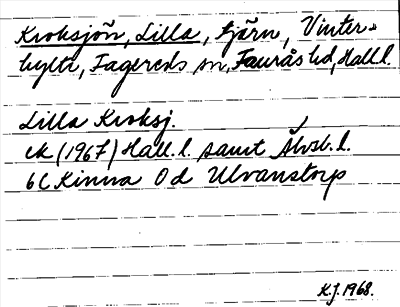 Kroksjön, Lilla, tjärn, Vinter-
hylte, Fagereds sn, Faurås hd, Hall l.
Lilla Kroksj.
ek (1967) Hall. l. samt Älvsb. l.
6C Kinna 0d Ulvanstorp
K.J. 1968.